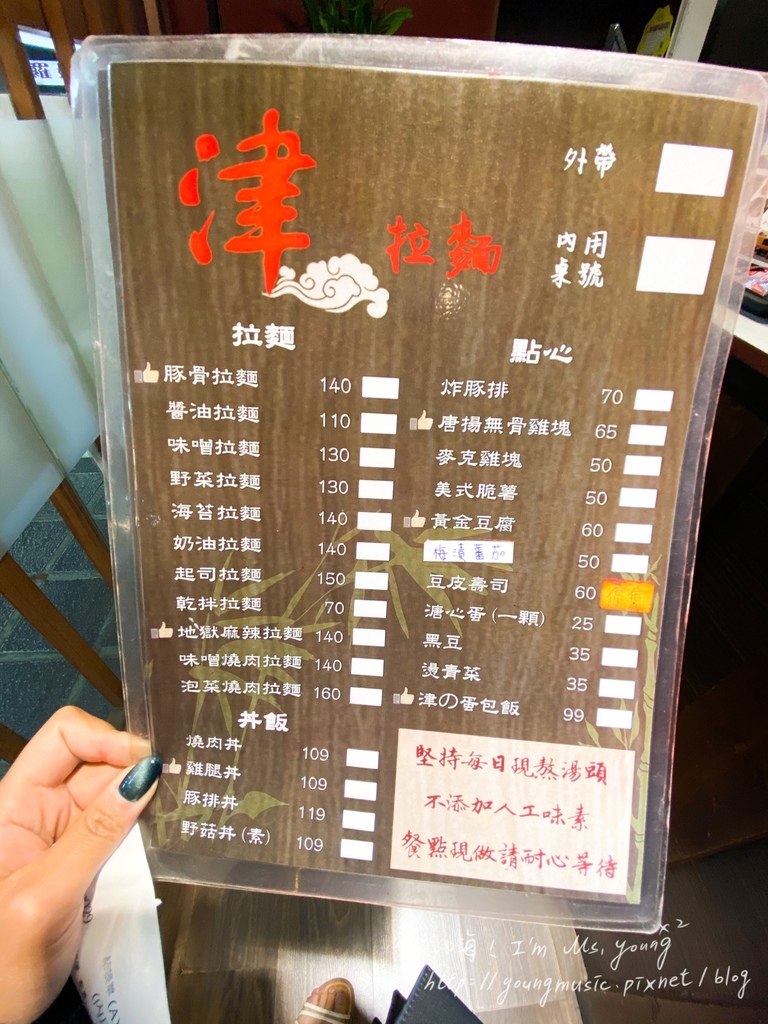 羅
津
拉麵
外帶
內用
桌號
拉麵
豚骨拉麵 140
醬油拉麵 110
味噌拉麵 130
野菜拉麵 130
海苔拉麵 140
奶油拉麵 140
起司拉麵 150
乾拌拉麵 70
地獄麻辣拉麵 140
味噌燒肉拉麵 140
泡菜燒肉拉麵 160
丼飯
燒肉丼 109
雞腿丼 109
豚排丼 119
野菇丼(素) 109
點心
炸豚排 70
唐揚無骨雞塊 65
麥克雞塊 50
美式脆薯 50
黃金豆腐 60
梅漬蕃茄 50
豆皮壽司 60
溏心蛋(一顆) 25
黑豆 35
燙青菜 35
津の蛋包飯 99
堅持每日現熬湯頭
不添加人工味素
餐點現做請耐心等待
嗨! I'm Ms. young x2
http://youngmusic.pixnet/blog